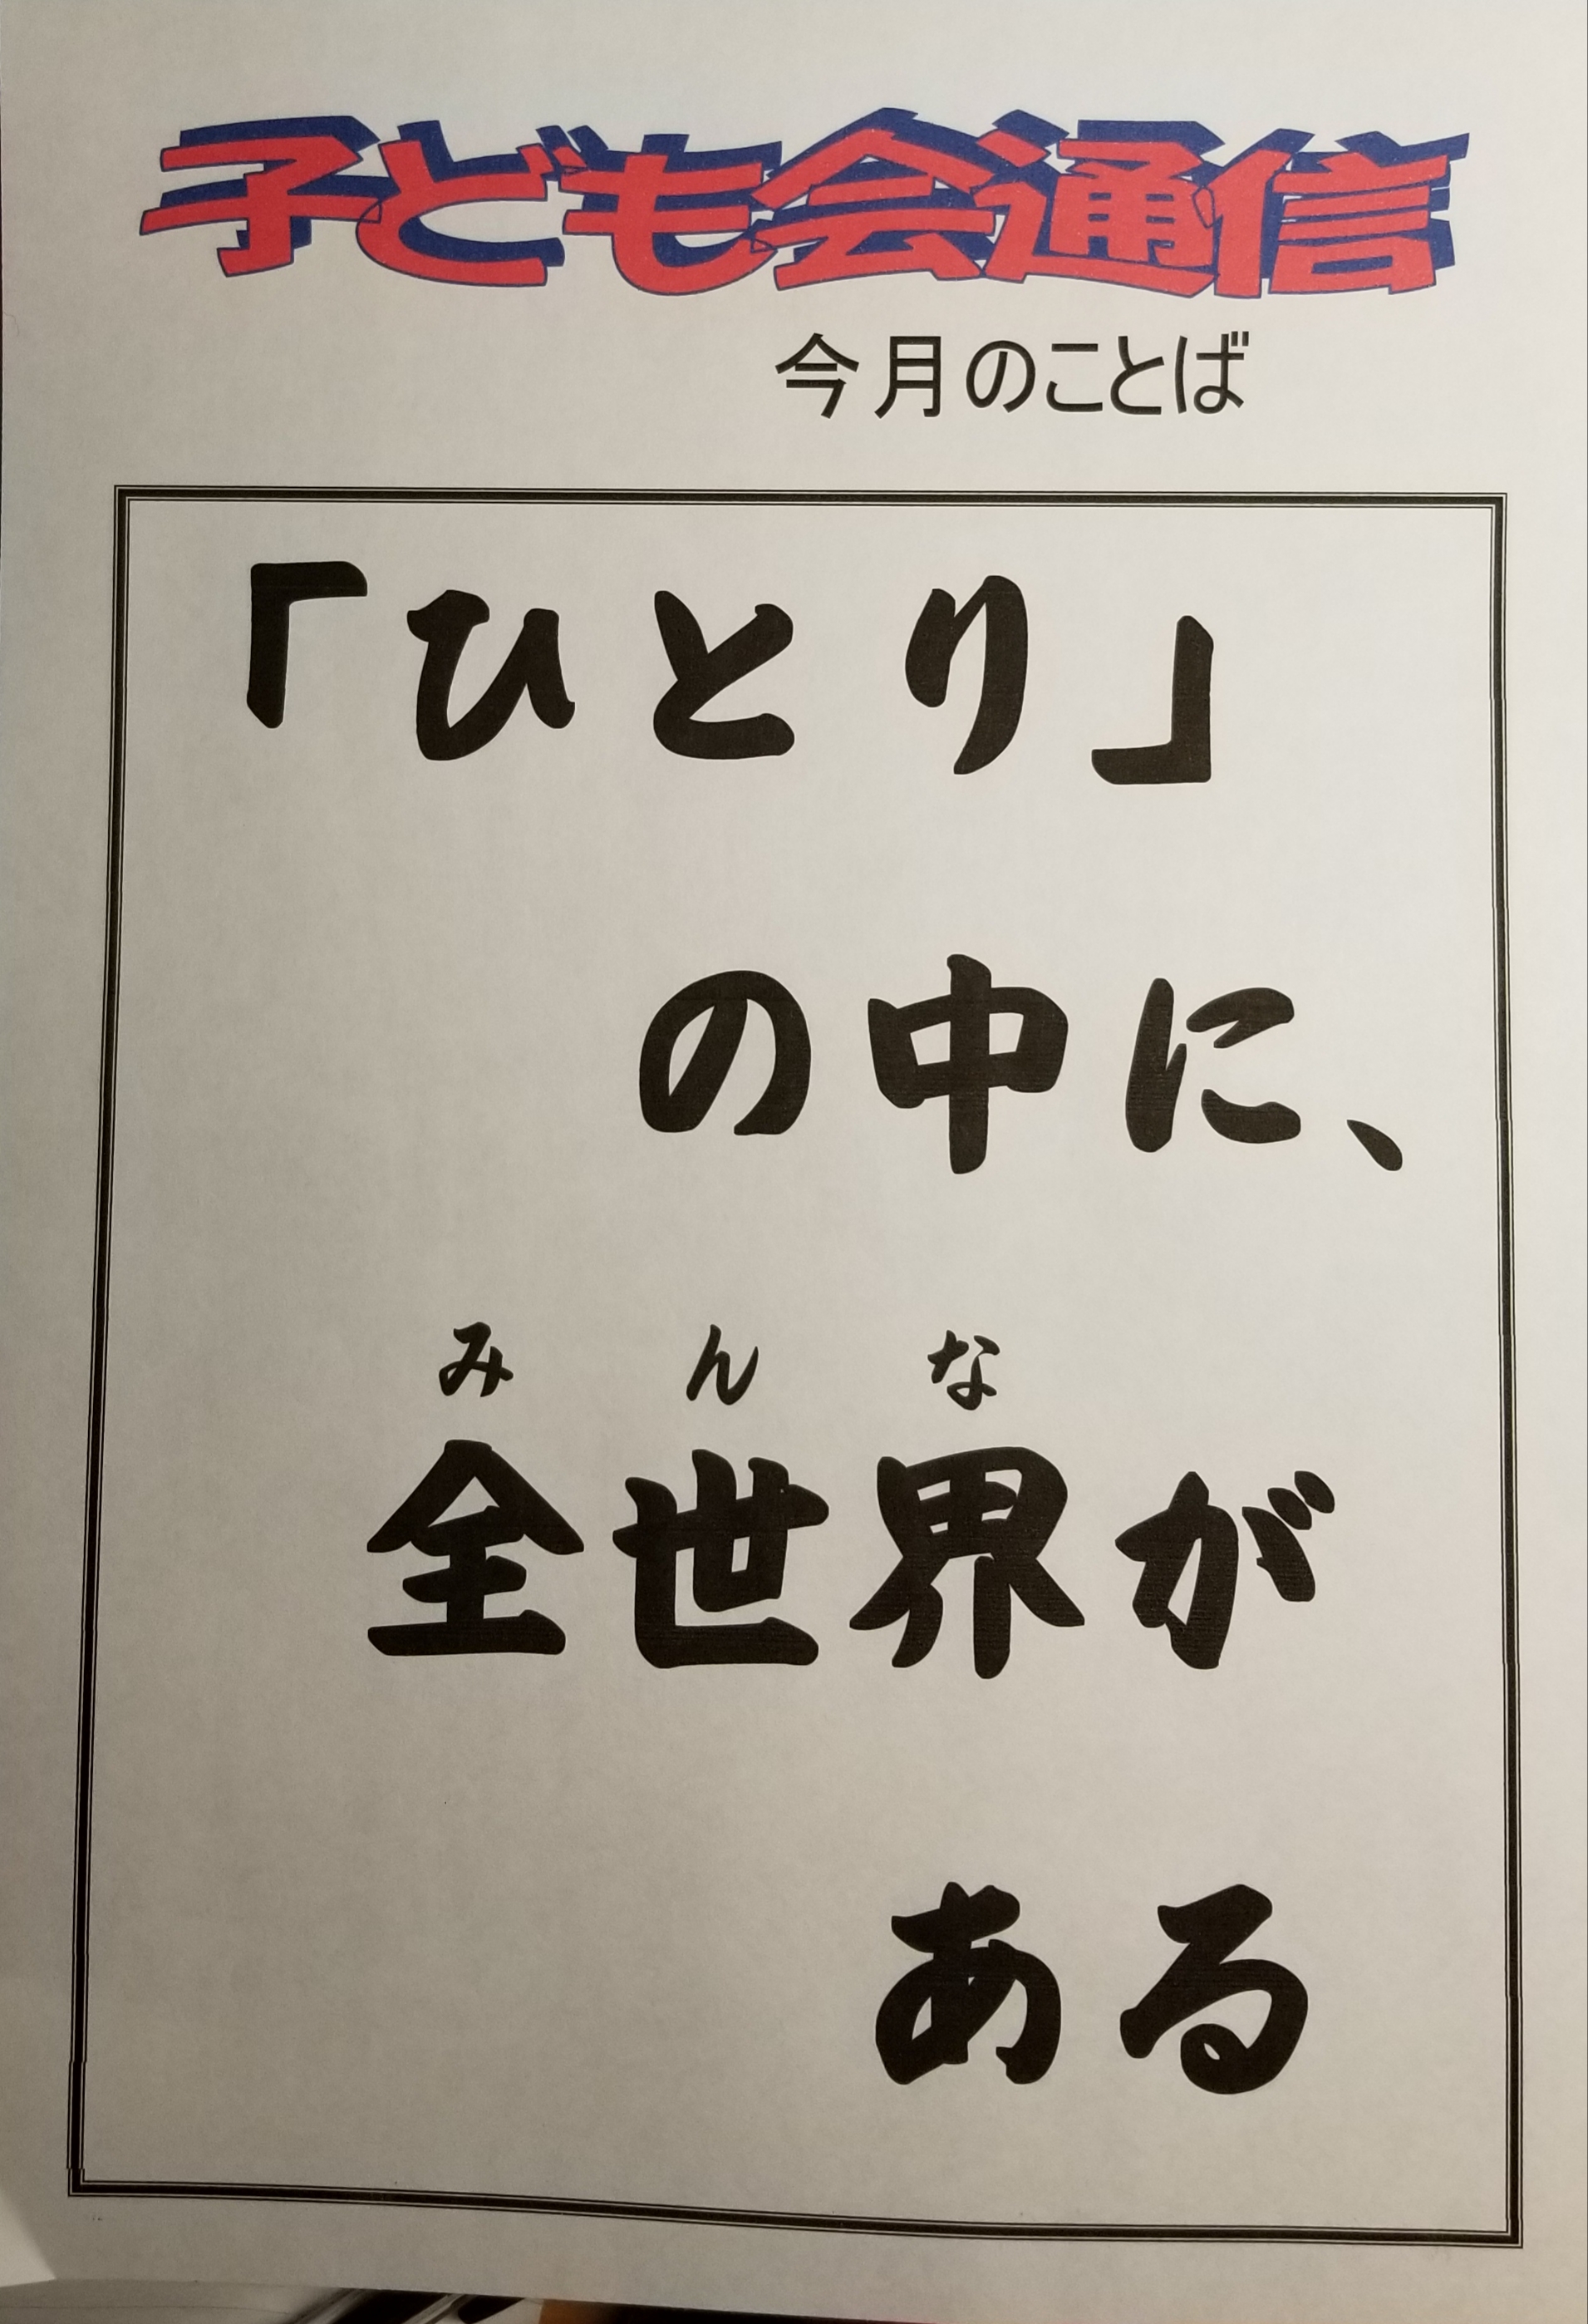 子ども会通信
今月のことば
「ひとり」
の中に、
みんな
全世界が
ある